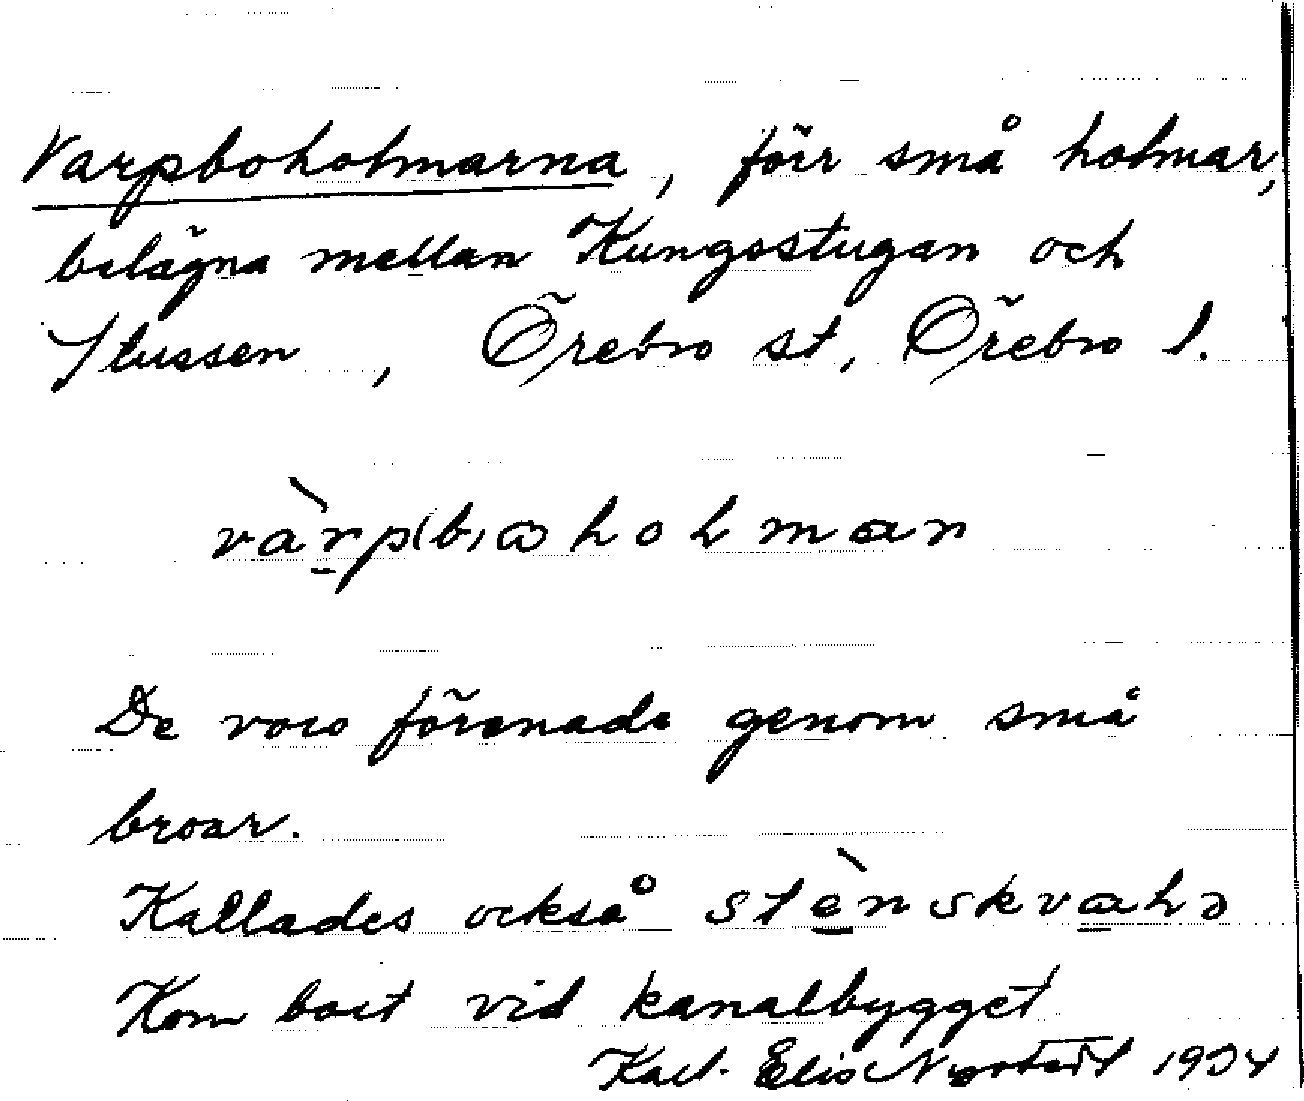 Varpboholmarna, förr små holmar,
belägna mellan Kungsstugan och
Slussen, Örebro st, Örebro l.
vàrp(b)aholmαn
De voro förenade genom små
broar.
Kallades också stènskvalə
Kom bort vid kanalbygget
Karl-Elis Nystedt 1934